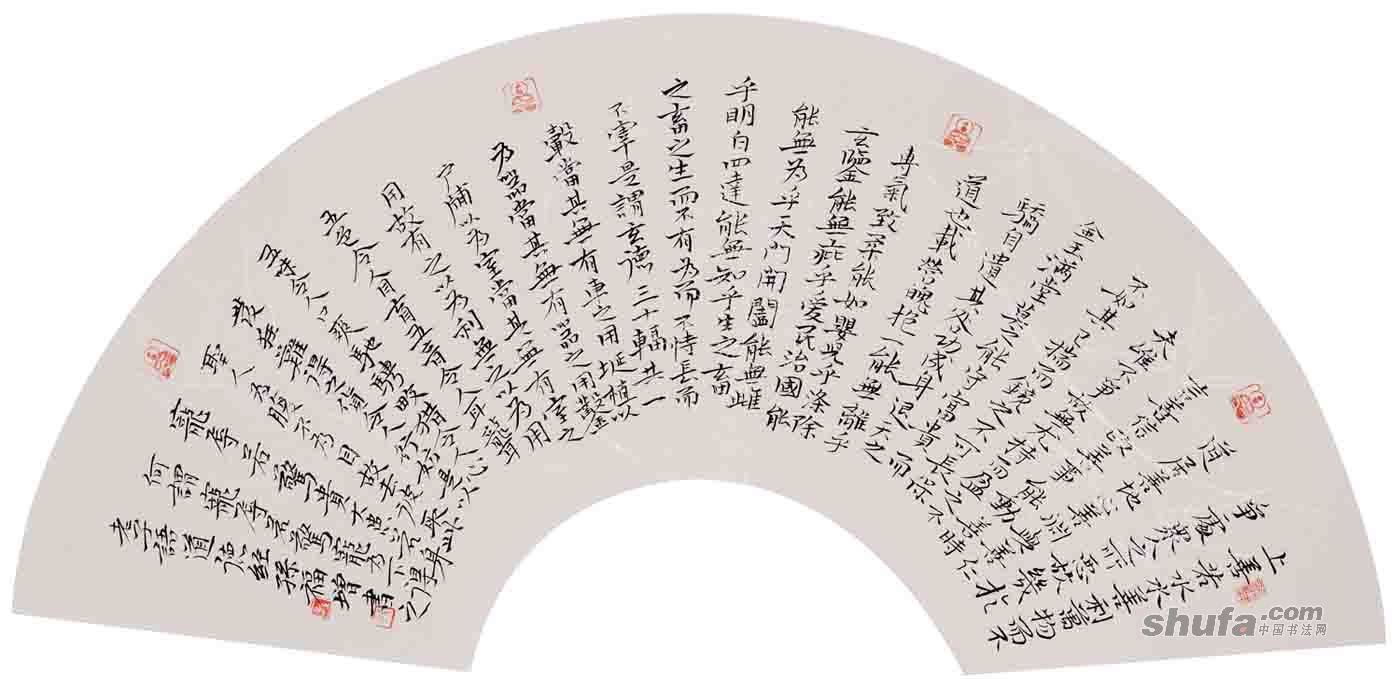 上善若水水善利萬物而不
爭處衆人之所惡故幾於
道居善地心善淵與善仁
言善信政善事能動善時
夫唯不爭故無尤持而盈之
不如其已揣而銳之不可長保
金玉滿堂莫之能守富貴而
驕自遺其咎功成身退天之
道也載營魄抱一能無離乎
專氣致柔能如嬰兒乎滌除
玄鑒能無疵乎愛民治國能
能無為乎天門開闔能無雌
乎明白四達能無知乎生之畜
之畜之生而不有為而不恃長而
不宰是謂玄德三十輻共一
轂當其無有車之用埏埴以
為器當其無有器之用鑿
戶牖以為室當其無有室之
用故有之以為利無之以為用
五色令人目盲五音令人耳聾
五味令人口爽馳騁畋獵令人心
發狂難得之貨令人行妨是以
聖人為腹不為目故去彼取此
寵辱若驚貴大患若身
何謂寵辱若驚寵為下得之
老子語道德經孫福增書
shufa.com
中国书法网